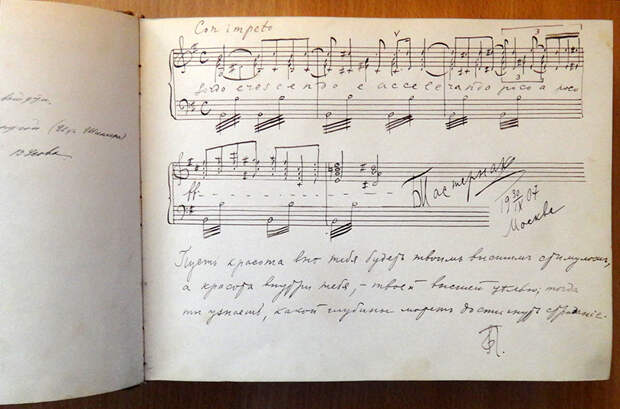 Con impeto
crescendo e accelerando poco a poco
3 3
ff
Пастернак
19 30/IX 07
Москва
Пусть красота внѣ тебя будетъ твоимъ высшимъ стимуломъ,
а красота внутри тебя, – твоей высшей цѣлью; тогда
ты узнаешь, какой глубины можетъ достигнуть
БП.